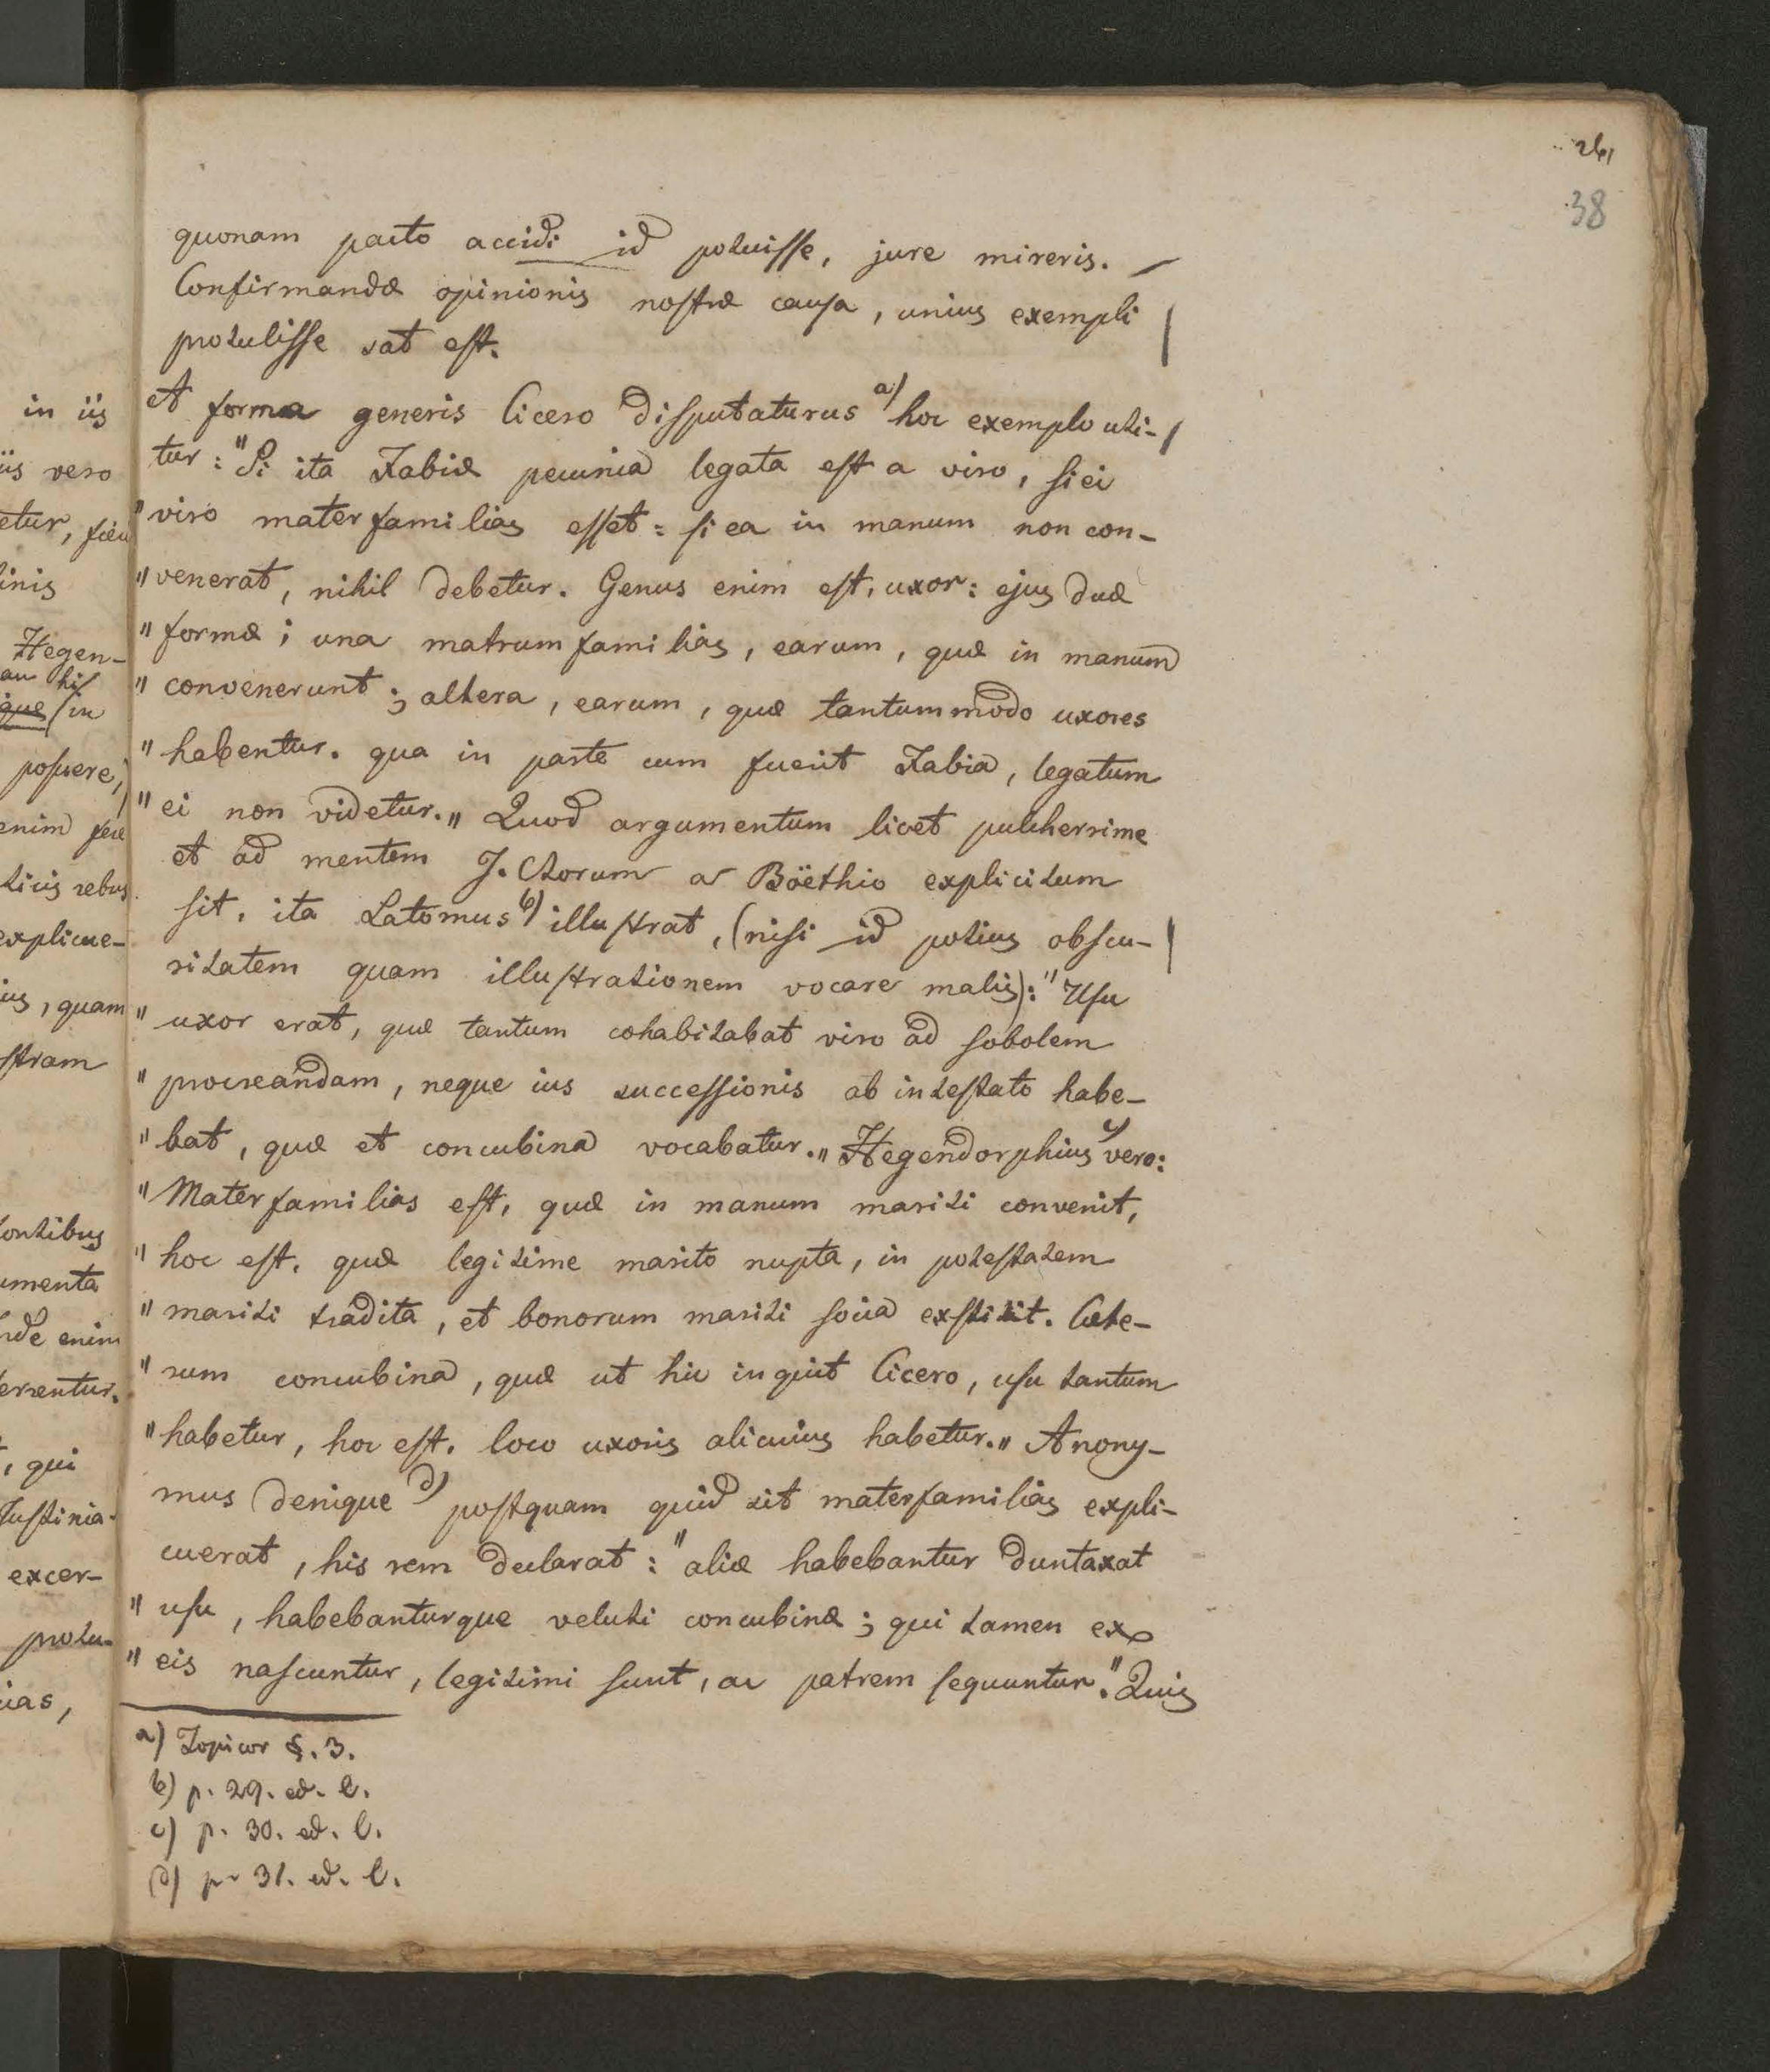 38
quonam pacto accidi id potuisse, jure mireris.
Confirmandæ opinionis nostræ causa, unius exempli
protulisse sat est.
A forma generis Cicero disputaturus a) hoc exemplo uti-
tur: "Si ita Fabiæ pecunia legata est a viro, si ei
"viro materfamilias esset: si ea in manum non con-
"venerat, nihil debetur. Genus enim est, uxor: ejus duæ
"formæ; una matrumfamilias, earum, quæ in manum
"convenerunt; altera, earum, quæ tantummodo uxores
"habentur. qua in parte cum fuerit Fabia, legatum
"ei non videtur." Quod argumentum licet pulcherrime
et ad mentem J. Ctorum a Böethio explicitum
sit, ita Latomus b) illustrat, (nisi id potius obscu-
ritatem quam illustrationem vocare malis): "Usu
"uxor erat, quæ tantum cohabitabat viro ad sobolem
"procreandam, neque ius successionis ab intestato habe-
"bat, quæ et concubina vocabatur." Hegendorphius c) vero:
"Materfamilias est, quæ in manum mariti convenit,
"hoc est, quæ legitime marito nupta, in potestatem
"mariti tradita, et bonorum mariti socia exstitit. Cæte-
"rum concubina, quæ ut hic inquit Cicero, usu tantum
"habetur, hoc est, loco uxoris alicuius habetur." Anony-
mus denique d) postquam quid sit materfamilias expli-
cuerat, his rem declarat: "aliæ habebantur duntaxat
"usu, habebanturque veluti concubinæ; qui tamen ex
"eis nascuntur, legitimi sunt, ac patrem sequuntur." Quis
a) Topicor §. 3.
b) p. 29. ed. l.
c) p. 30. ed. l.
d) p. 31. ed. l.
in iis
iis vero
etur,
inis
Hegen-
que in
posuere,
enim
ticis rebus
explicue-
ius, quam
stram
ontibus
umenta
nde enim
ersentur.
, qui
Justinia-
excer-
protu-
ias,